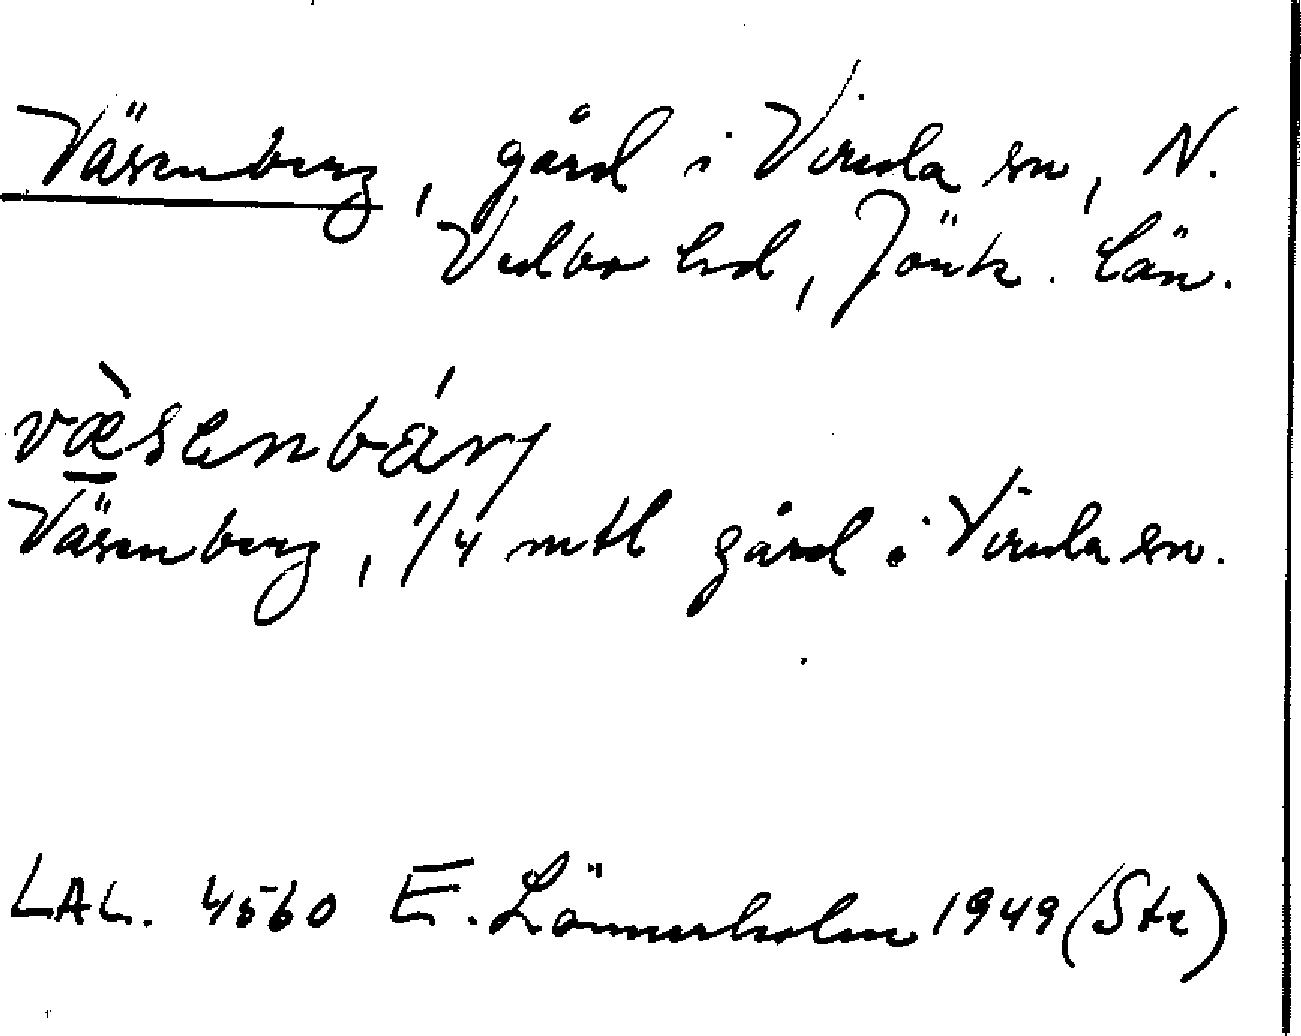 Väsenberg, gård i Vireda sn, N.
Vedbo hd, Jönk. län.
væ̀senbárj
Väsenberg, 1/4 mtl gård i Vireda sn.
LAL. 4560 E. Lönnerholm 1949 (Ste)